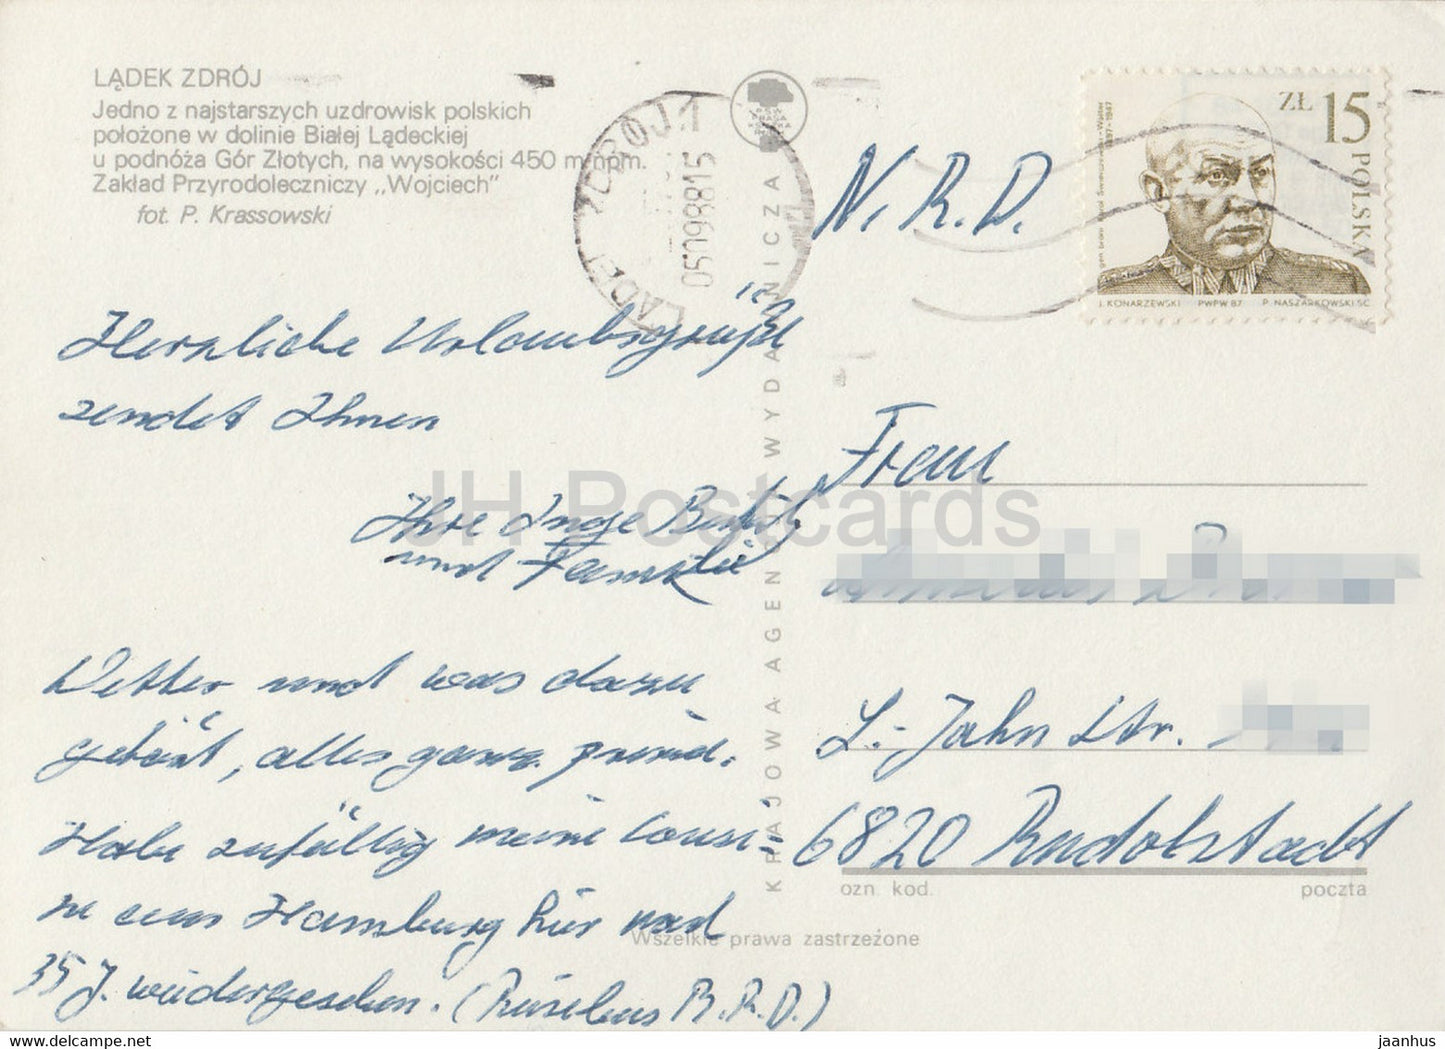 LĄDEK ZDRÓJ
Jedno z najstarszych uzdrowisk polskich
położone w dolinie Białej Lądeckiej
u podnóża Gór Złotych, na wysokości 450 m npm.
Zakład Przyrodoleczniczy „Wojciech”
fot. P. Krassowski
ZDRÓJ 1
05098815
N.R.D.
ZŁ 15
POLSKA
J. KONARZEWSKI PWPW 87 P. NASZARKOWSKI SC.
Herzliche Urlaubsgrüße
sendet Ihnen
Ihre Inge
und Familie
Wetter und was dazu
gehört, alles ganz prima.
Habe zufällig meine Cousi-
ne aus Hamburg hier nach
35 J. wiedergesehen. (
Frau
L.-Jahn Str.
6820 Rudolstadt
ozn. kod. poczta
KRAJOWA AGENCJA WYDAWNICZA
Wszelkie prawa zastrzeżone
JH Postcards
www.delcampe.net
jaanhus